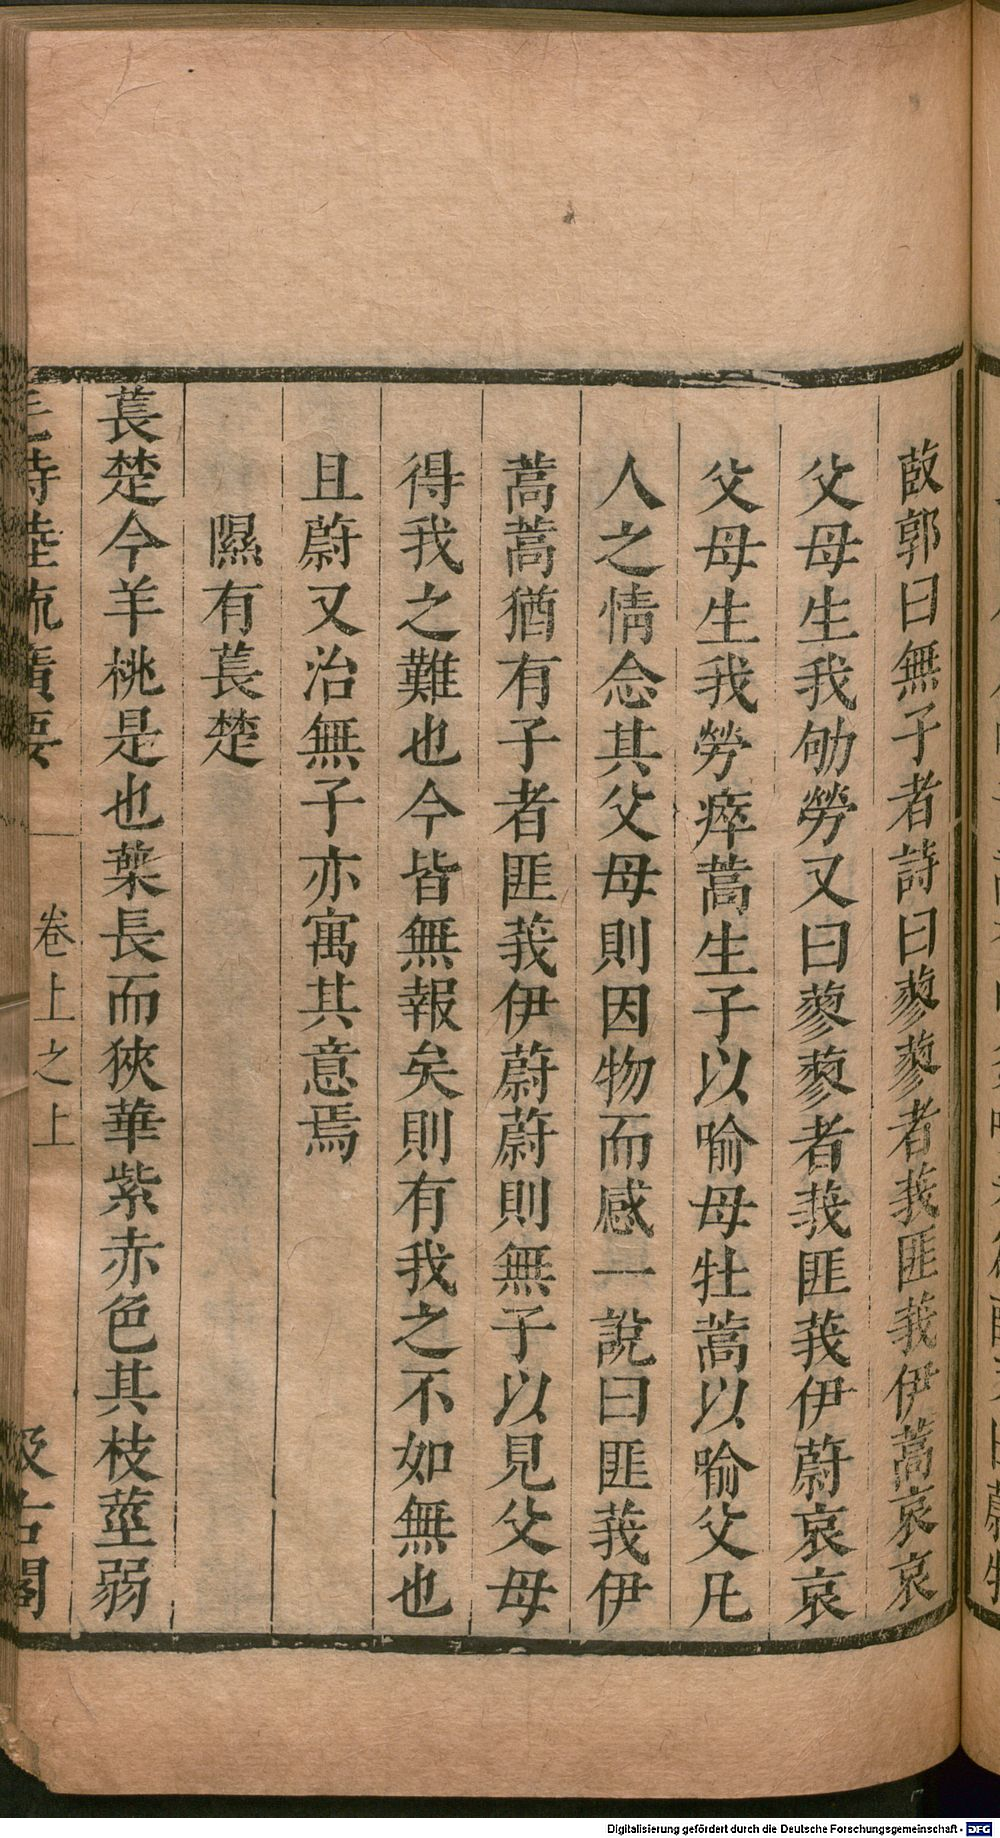 菣郭曰無子者詩曰蓼蓼者莪匪莪伊蒿哀哀
父母生我劬勞又曰蓼蓼者莪匪莪伊蔚哀哀
父母生我勞瘁蒿生子以喻母牡蒿以喻父凡
人之情念其父母則因物而感一說曰匪莪伊
蒿蒿猶有子者匪莪伊蔚蔚則無子以見父母
得我之難也今皆無報矣則有我之不如無也
且蔚又治無子亦寓其意焉
隰有萇楚
萇楚今羊桃是也葉長而狹華紫赤色其枝莖弱
毛詩陸疏廣要 卷上之上 汲古閣
Digitalisierung gefördert durch die Deutsche Forschungsgemeinschaft - DFG